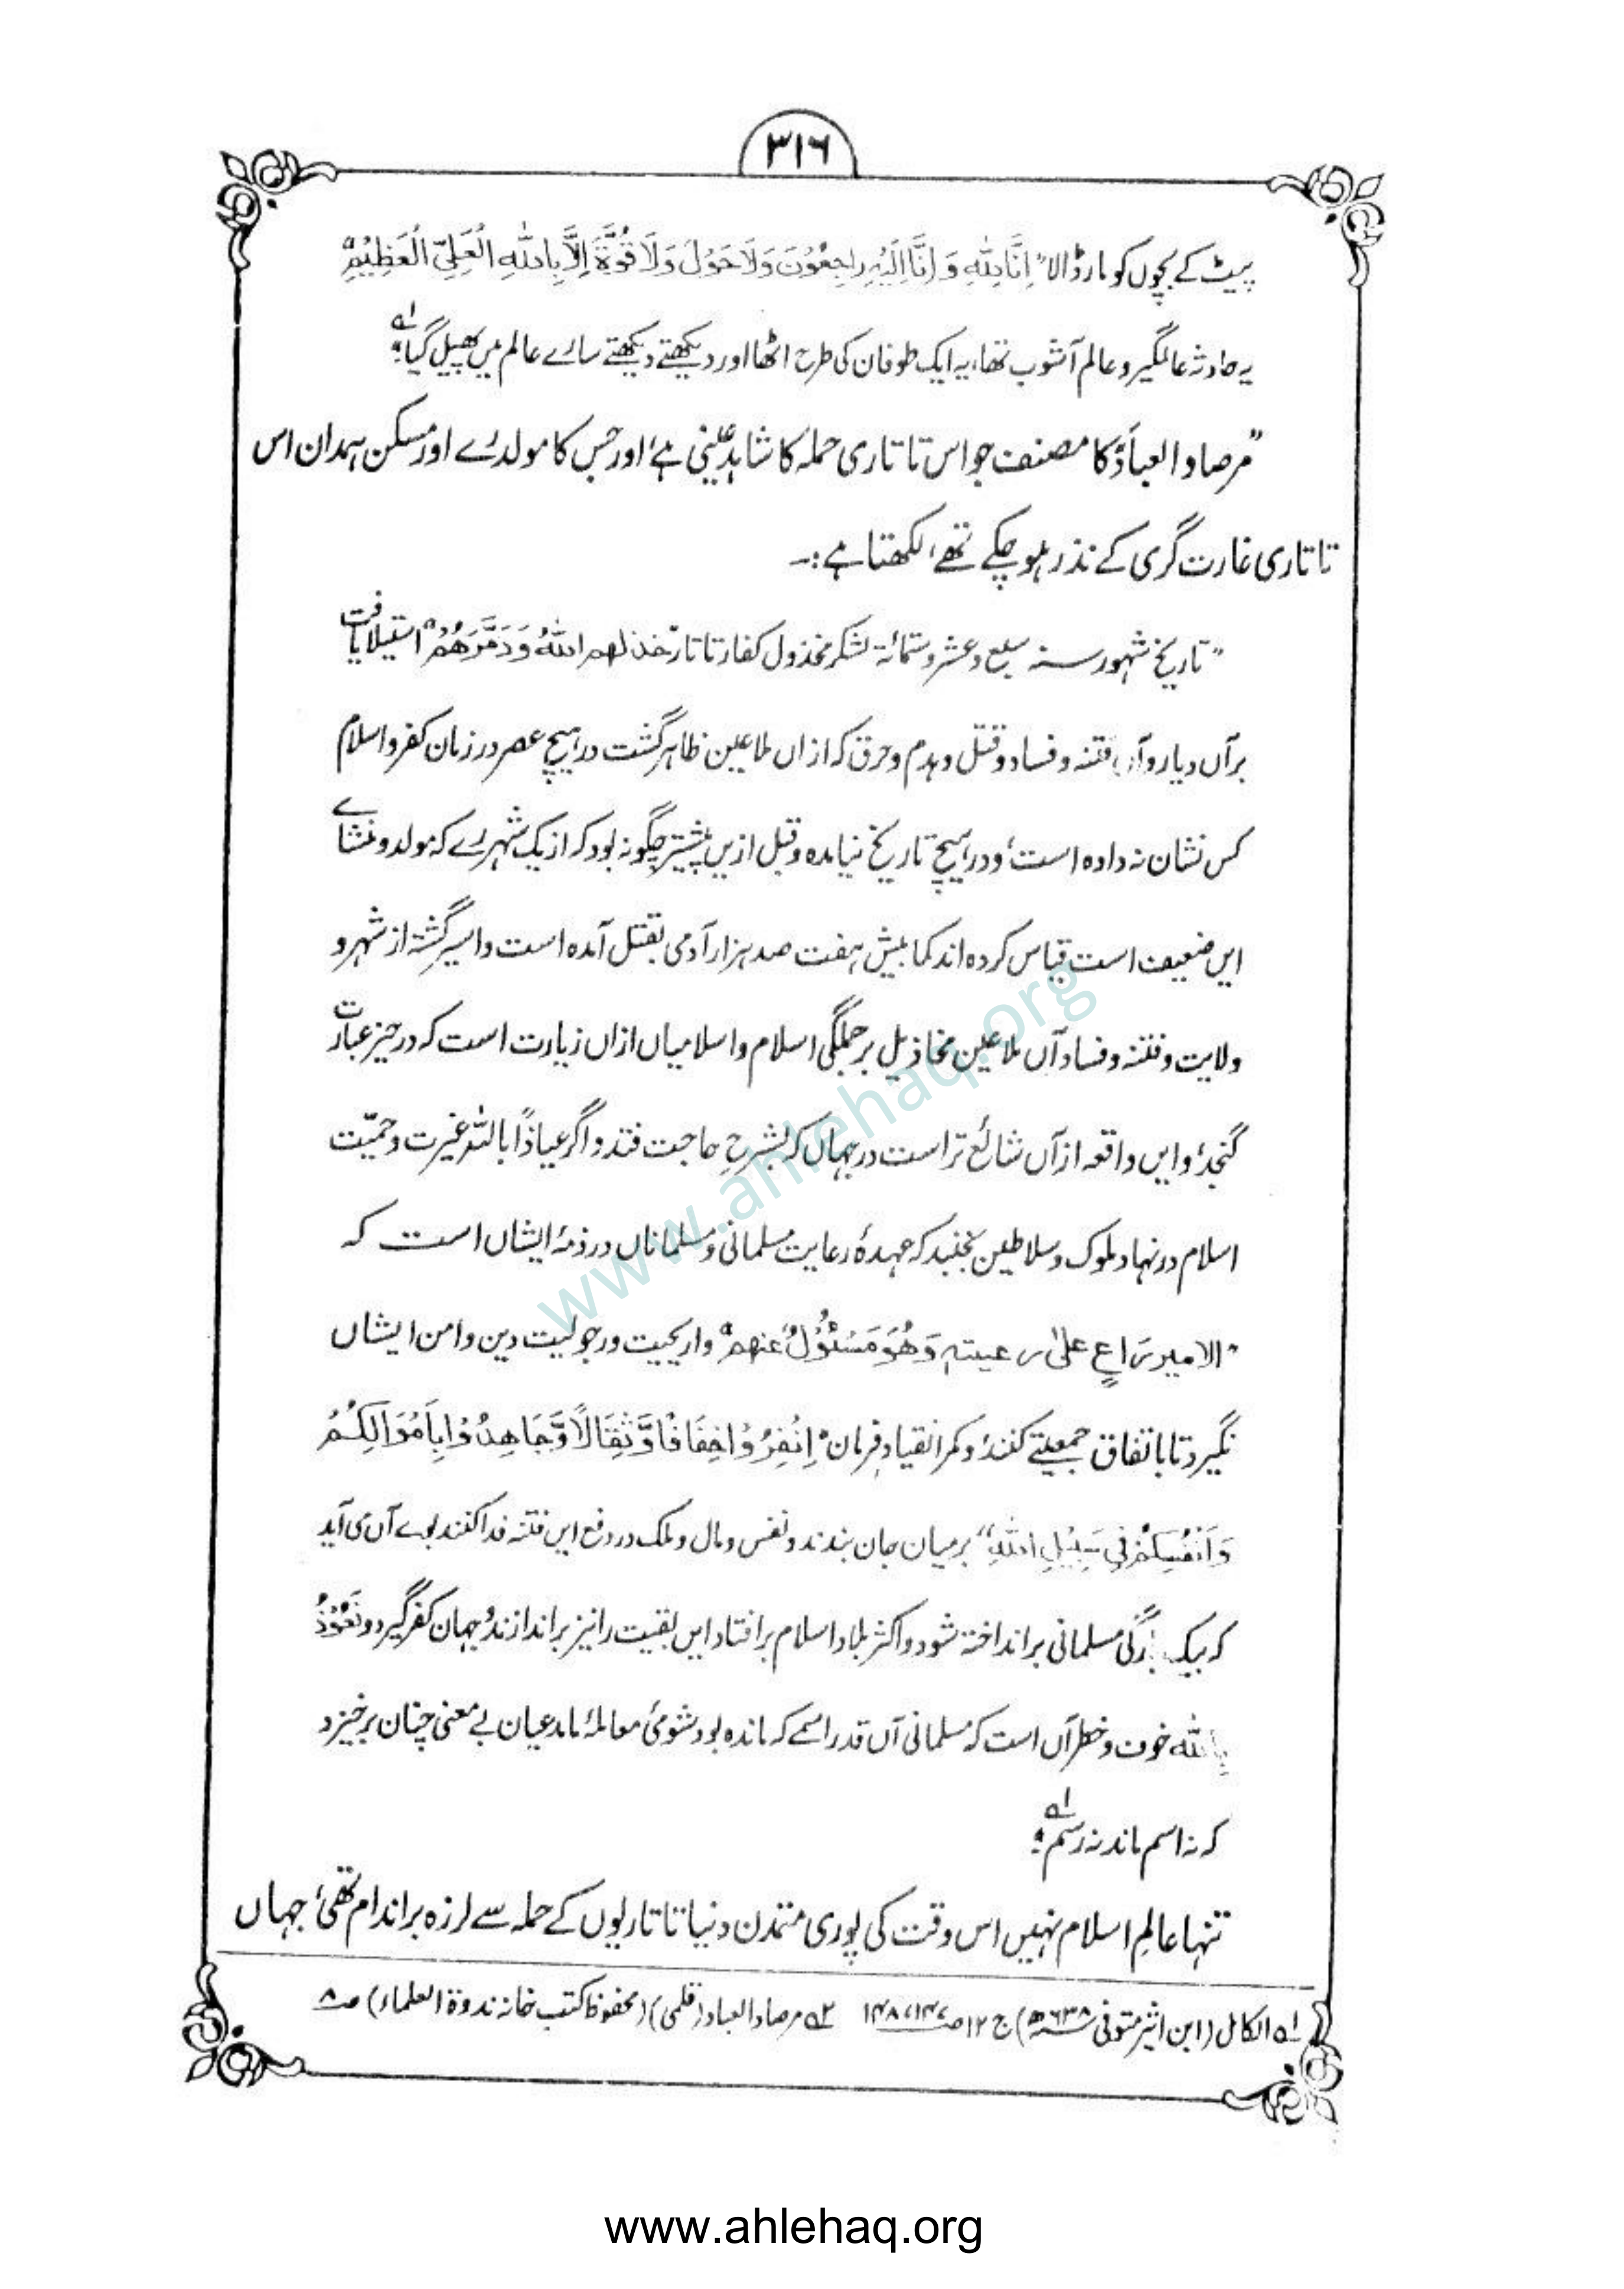 ۳۱۶
پیٹ کے بچوں کو مار ڈالا" اِنَّا لِلّٰہِ وَ اِنَّا اِلَیْہِ رَاجِعُوْنَ وَلَا حَوْلَ وَلَا قُوَّۃَ اِلَّا بِاللّٰہِ الْعَلِیِّ الْعَظِیْمِ"
یہ حادثہ عالمگیر و عالم آشوب تھا، یہ ایک طوفان کی طرح اٹھا اور دیکھتے دیکھتے سارے عالم میں پھیل گیا"؎۱
"مرصاد العباد" کا مصنف جو اس تاتاری حملہ کا شاہد عینی ہے، اور جس کا مولد رے اور مسکن ہمدان اس
تاتاری غارت گری کے نذر ہو چکے تھے، لکھتا ہے :۔
"تاریخ شہور سنہ سبع و عشر و ستمائۃ لشکر مخذول کفار تاتار خذلھم اللّٰہُ وَدَمَّرَھُمْ" استیلا یافت
برآں دیار و آں فتنہ و فساد و قتل و ہدم و حرق کہ ازاں ملاعین ظاہر گشت در ہیچ عصر در زمان کفر و اسلام
کس نشان نہ دادہ است، و در ہیچ تاریخ نیامدہ و قبل ازیں پیشتر چگونہ بود کہ از یک شہر رے کہ مولد و منشائے
ایں ضعیف است قیاس کردہ اند کمابیش ہفت صد ہزار آدمی بقتل آمدہ است و اسیر گشتہ از شہر و
ولایت و فتنہ و فساد آں ملاعین مخاذیل بر جملگی اسلام و اسلامیاں ازاں زیارت است کہ در حیز عبارت
گنجد، و ایں واقعہ ازآں شائع تر است در جہاں کہ بشرحِ حاجت فتد و اگر عیاذاً باللہ غیرت و حمیّت
اسلام در نہاد ملوک و سلاطین بجنبد کہ عہدۂ رعایت مسلمانی و مسلماناں در ذمۂ ایشاں است کہ
"الامیر رَاعٍ علیٰ رعیتہٖ وَھُوَ مَسْئُوْلٌ عنھم" و اریحیت و رجولیت دین وامن ایشاں
نگیرد تا باتفاق جمعیتے کنند، و کمر انقیاد فرمان "اِنْفِرُوْا خِفَافًا وَّثِقَالًا وَّجَاھِدُوْا بِاَمْوَالِکُمْ
وَاَنْفُسِکُمْ فِیْ سَبِیْلِ اللّٰہِ" بر میان جان بندند و نفس و مال و ملک در دفع ایں فتنہ فدا کنند بوے آں می آید
کہ بیک بارگی مسلمانی برانداختہ شود و اکثر بلاد اسلام برافتاد ایں بقیت را نیز براندازند، و جہان کفر گیرد و نَعُوْذُ
بِاللّٰہِ خوف و خطر آں است کہ مسلمانی آں قدر اسمے کہ ماندہ بود شومیٔ معاملۂ ما مدعیان بے معنی چناں برخیزد
کہ نہ اسم ماند نہ رسم"؎۱
تنہا عالمِ اسلام نہیں اس وقت کی پوری متمدن دنیا تاتاریوں کے حملہ سے لرزہ براندام تھی، جہاں
؎۱ الکامل (ابن اثیر متوفی ۶۳۸ھ) ج ۱۲ ص ۱۴۷، ۱۴۸ ؎۲ مرصاد العباد (قلمی) (محفوظ کتب خانہ ندوۃ العلماء) ص ۸
www.ahlehaq.org
www.ahlehaq.org